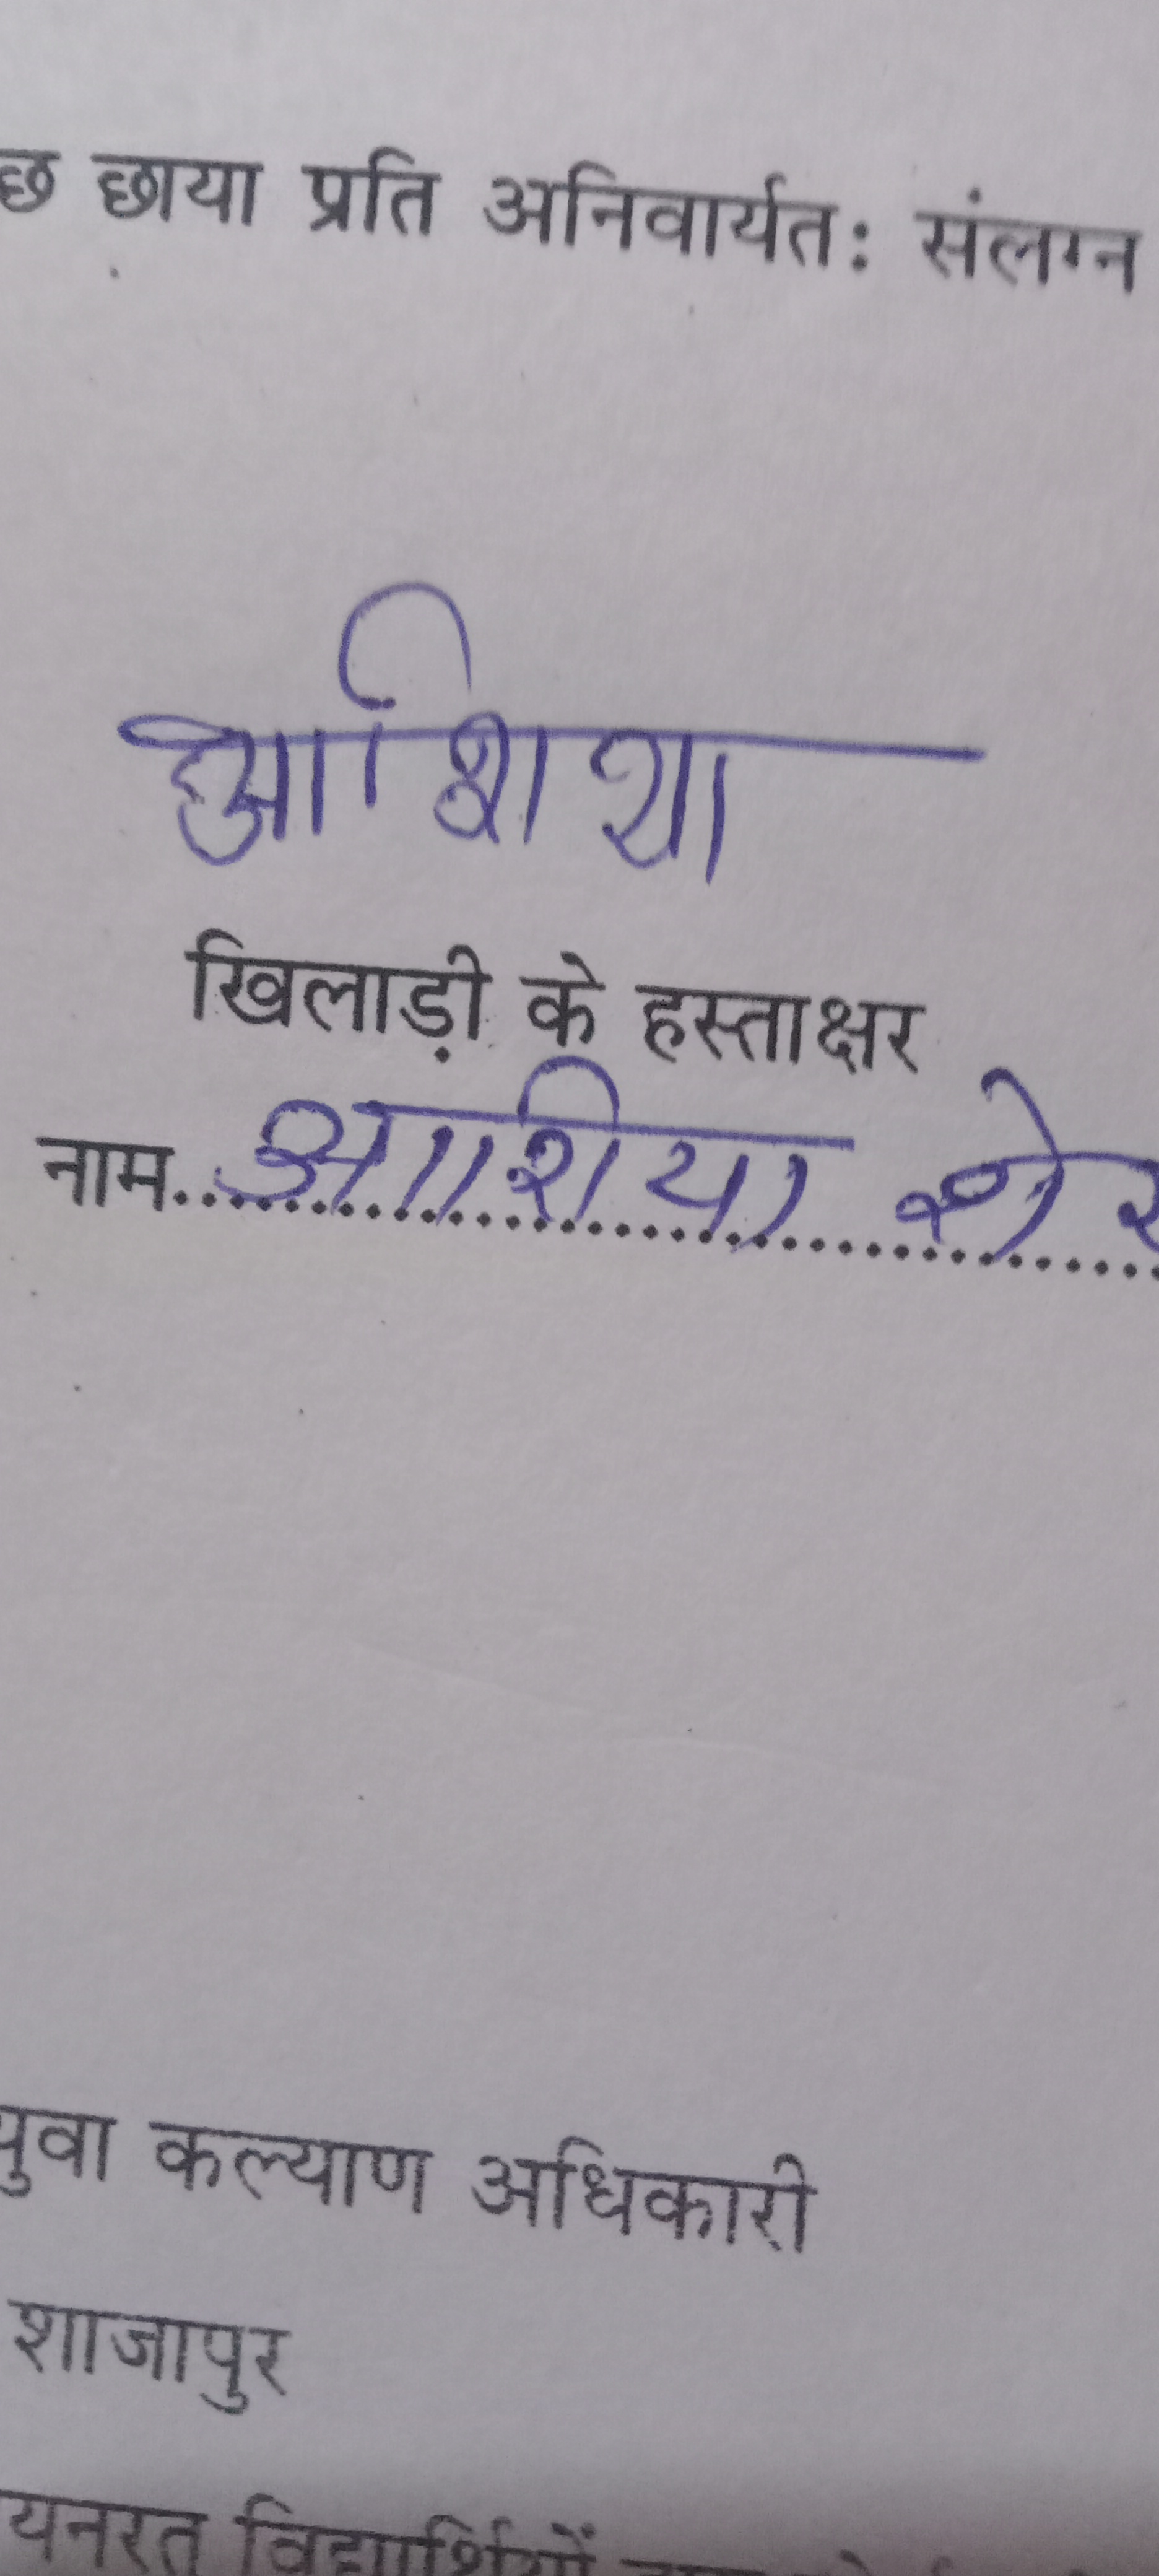 छ छाया प्रति अनिवार्यतः संलग्न
आशिया
खिलाड़ी के हस्ताक्षर
नाम.. आशिया शे
युवा कल्याण अधिकारी
शाजापुर
यनरत विद्यार्थियों